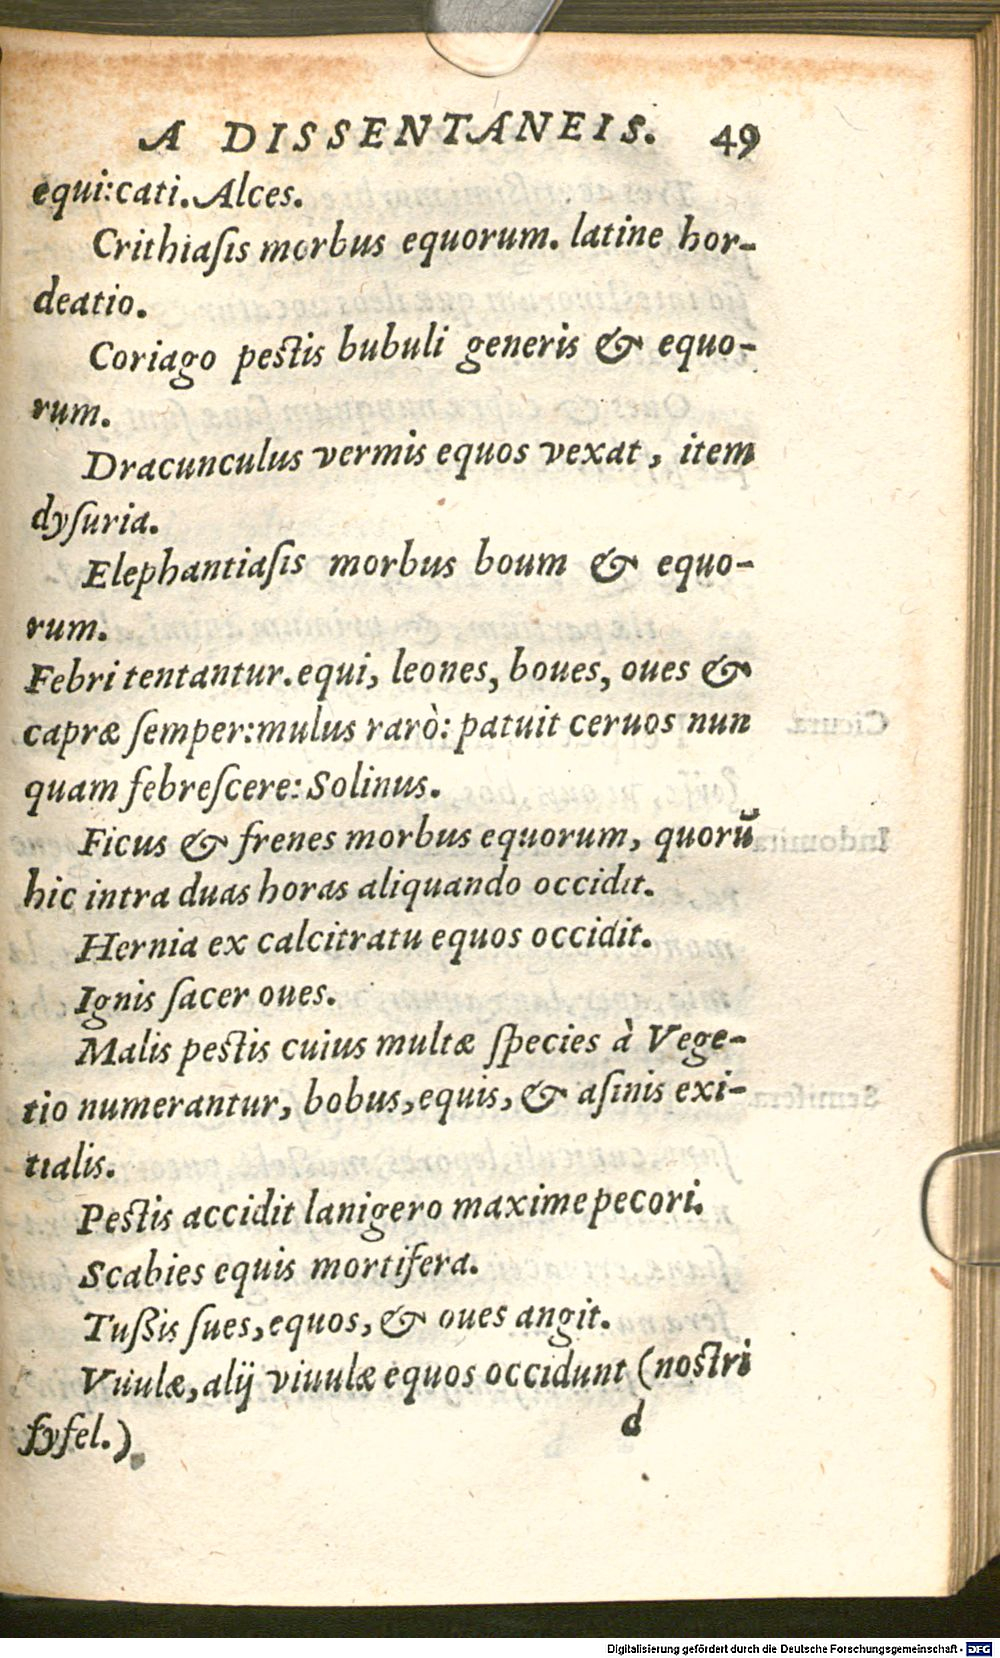 A DISSENTANEIS. 49
equi:cati. Alces.
Crithiaſis morbus equorum. latine hor-
deatio.
Coriago peſtis bubuli generis & equo-
rum.
Dracunculus vermis equos vexat, item
dyſuria.
Elephantiaſis morbus boum & equo-
rum.
Febri tentantur. equi, leones, boues, oues &
capræ ſemper: mulus rarò: patuit ceruos nun
quam febreſcere: Solinus.
Ficus & frenes morbus equorum, quorũ
hic intra duas horas aliquando occidit.
Hernia ex calcitratu equos occidit.
Ignis ſacer oues.
Malis peſtis cuius multæ ſpecies à Vege-
tio numerantur, bobus, equis, & aſinis exi-
tialis.
Peſtis accidit lanigero maxime pecori.
Scabies equis mortifera.
Tußis ſues, equos, & oues angit.
Vuulæ, alij viuulæ equos occidunt (noſtri
fyfel.)
d
Digitalisierung gefördert durch die Deutsche Forschungsgemeinschaft - DFG